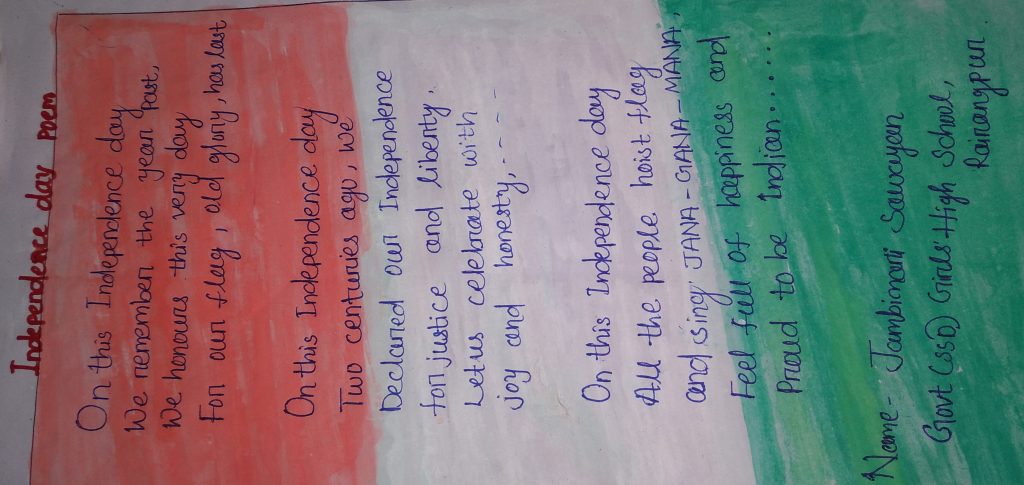 Independence day poem
On this Independence day
We remember the year past,
We honours this very day
For our flag, old glory, has last
On this Independence day
Two centuries ago, we
Declared our Independence
for justice and liberty.
Let us celebrate with
joy and honesty,....
On this Independence day
All the people hoist flag
and sing JANA-GANA-MANA,
Feel full of happiness and
Proud to be Indian.......
Name- Jambimani Sawayan
Govt (SSD) Girls High School,
Rairangpur.